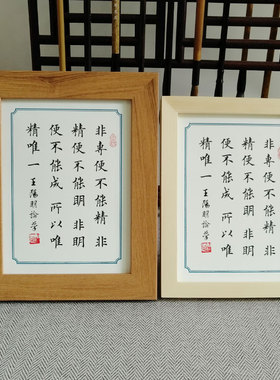 非專便不能精非
精便不能明非明
便不能成 所以唯
精唯一 王陽明論學
非專便不能精非
精便不能明非明
便不能成 所以唯
精唯一 王陽明論學